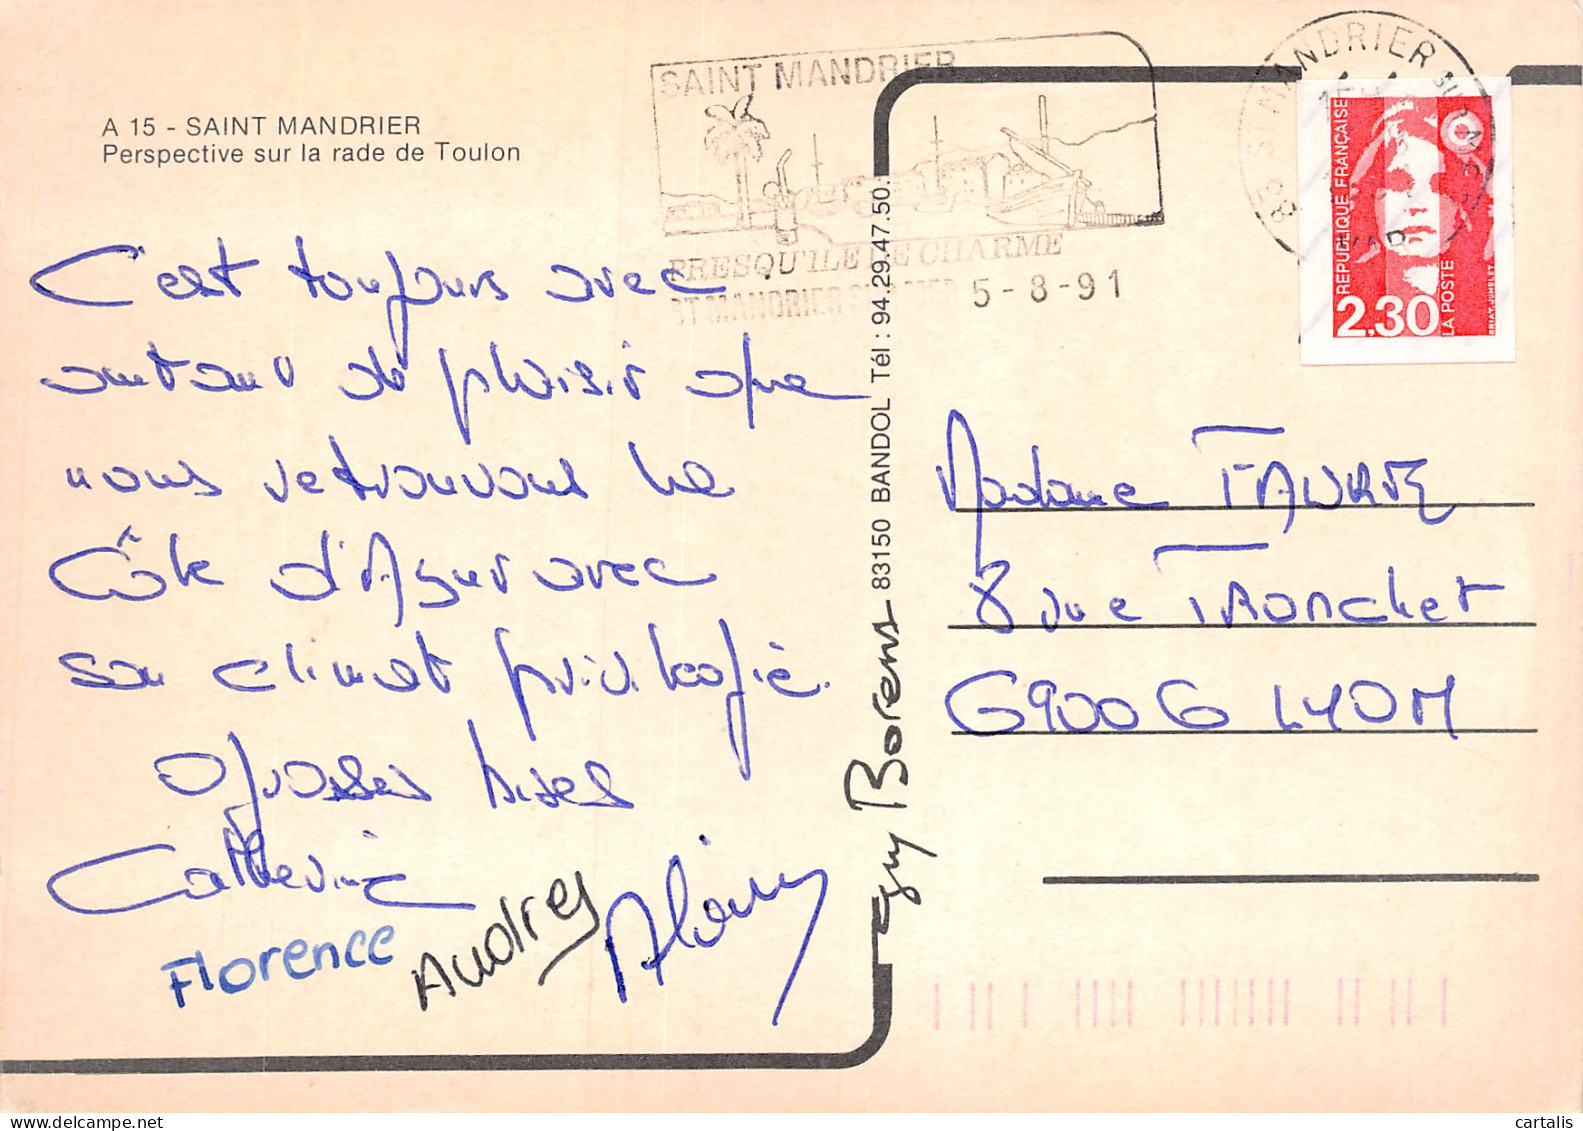 A 15 - SAINT MANDRIER
Perspective sur la rade de Toulon
SAINT MANDRIER
PRESQU'ILE DE CHARME
ST MANDRIER SUR MER 5 - 8 - 91
ST MANDRIER SUR MER
83
VAR
REPUBLIQUE FRANÇAISE
2,30
LA POSTE
BRIAT-JUMELET
C'est toujours avec
autant de plaisir que
nous retrouvons la
Côte d'Azur avec
son climat privilégié.
Grosses bises
Catherine
Florence
Audrey
Alain
guy Borens
83150 BANDOL Tél : 94.29.47.50.
Madame FAURE
8 rue TRONCHET
69006 LYON
cartalis